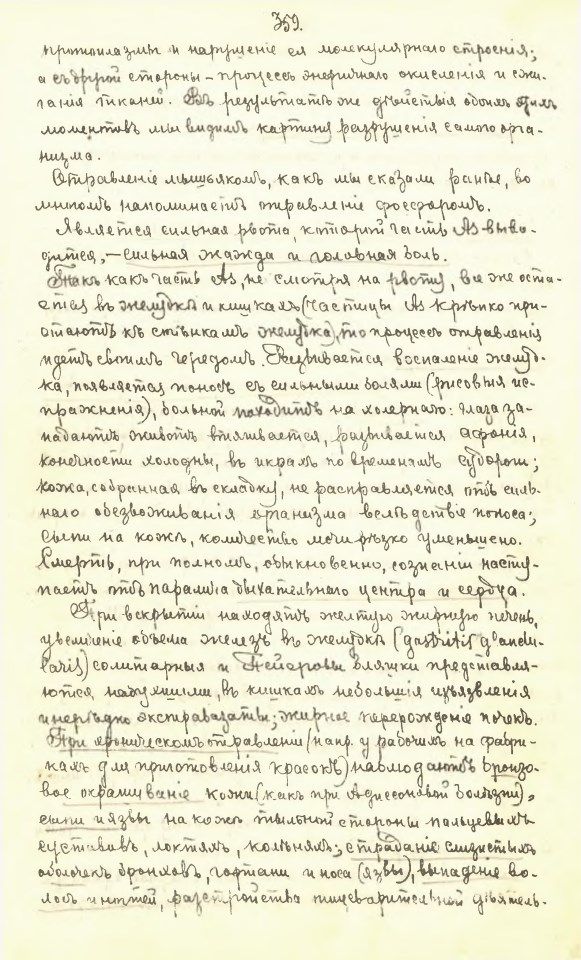 359.
протоплазмы и нарушеніе ея молекулярнаго строенія;
а съ другой стороны – процессъ энергичнаго окисленія и сжи-
ганія тканей. Въ результатѣ же дѣйствія обоихъ этихъ
моментовъ мы видимъ картину разрушенія самого орга-
низма.
Отравленіе мышьякомъ, какъ мы сказали ранѣе, во
многомъ напоминаетъ отравленіе фосфоромъ.
Является сильная рвота, которой часть As выво-
дится, – сильная жажда и головная боль.
Такъ какъ часть As, не смотря на рвоту, все же оста-
ется въ желудкѣ и кишкахъ (частицы As крѣпко при-
стаютъ къ стѣнкамъ желудка), то процессъ отравленія
идетъ своимъ чередомъ. Развивается воспаленіе желуд-
ка, появляется поносъ съ сильными болями (рисовыя ис-
пражненія), больной походитъ на холернаго: глаза за-
падаютъ, животъ втягивается, развивается афонія,
конечности холодны, въ икрахъ по временамъ судороги;
кожа, собранная въ складку, не расправляется отъ силь-
наго обезвоживанія организма вслѣдствіе поноса;
сыпи на кожѣ, количество мочи рѣзко уменьшено.
Смерть, при полномъ, обыкновенно, сознаніи насту-
паетъ отъ паралича дыхательнаго центра и сердца.
При вскрытіи находятъ желтую жирную печень,
увеличеніе объема железъ въ желудкѣ (gastritis glandu-
laris) солитарныя и Пейеровы бляшки представля-
ются набухшими, въ кишкахъ небольшія изъязвленія
и нерѣдко экстравазаты; жирное перерожденіе почекъ.
При хроническомъ отравленіи (напр. у рабочихъ на фабри-
кахъ для приготовленія красокъ) наблюдаютъ бронзо-
вое окрашиваніе кожи (какъ при Адиссоновой болѣзни),
сыпи и язвы на кожѣ тыльной стороны пальцевыхъ
суставовъ, локтяхъ, колѣняхъ; страданіе слизистыхъ
оболочекъ бронховъ, гортани и носа (язвы), выпаденіе во-
лосъ и ногтей, разстройства пищеварительной дѣятель-